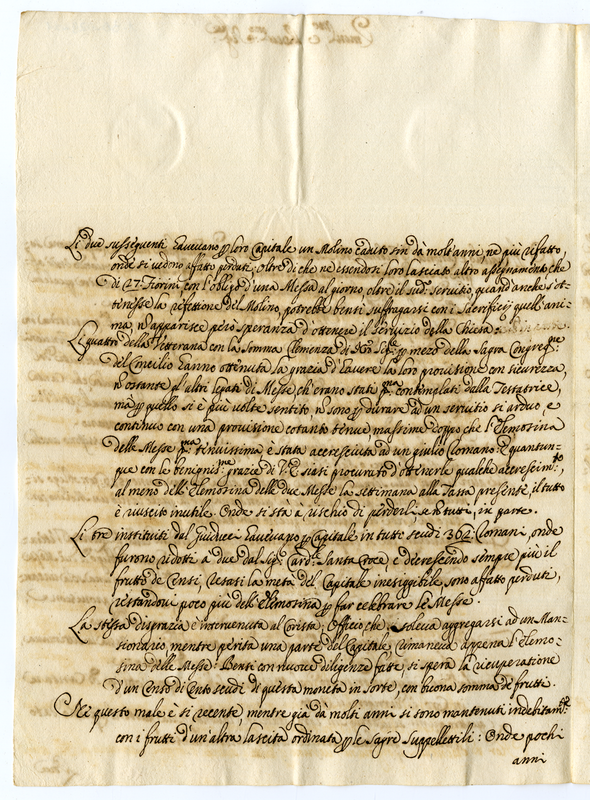 Li due susseguenti haueuano p loro Capitale un Molino caduto sin dà molt'anni, ne più rifatto,
onde si vedono affatto perduti; oltre di che nè essendosi loro lasciato altro assegnamento che
di 27. Fiorini con l'obligo d'una Messa al giorno oltre il sud.º seruitio, quand'anche s'ot-
tenesse la refettione del Molino, potrebbe bensi suffragarsi con i Sacrificij quell'ani-
ma, nõ apparisce però speranza d'ottenere il seruizio della Chiesa.
Li quattro della Veterana con la somma Clemenza di Nrõ Sig.re p mezo della Sagra Congreg.ne
del Concilio hanno ottenuta la grazia d'hauere la loro prouisione con sicurezza,
nõ ostante gl'altri legati di Messe ch'erano stati p.ma contemplati dalla Testatrice,
mà p quello si è più volte sentito, nõ sono p durare ad un seruitio si arduo, e
continuo con una prouisione cotanto tenue massime doppo che l'Elemosina
delle Messe p.ma tenuissima è stata accresciuta ad un giulio Romano: E quantun-
que con le benignis.me grazie di V.E. siasi procurato d'ottenerle qualche accrescim.to,
al meno dell'Elemosina delle due Messe la settimana alla Tassa presente, il tutto
è riuscito inutile. Onde si stà à rischio di perderli, se nõ tutti, in parte.
Li tre instituiti dal Giudicci haueuano p Capitale in tutto scudi 362. Romani, onde
furono ridotti a due dal Sig.r Card.le Santa Croce, e decrescendo sempre più il
frutto de Censi, restati la metà del Capitale inesiggibile sono affatto perduti,
restandoui poco più dell'Elemosina p far celebrare le Messe.
La stessa disgrazia è interuenuta al Corista; Officio che soleua aggregarsi ad un Man-
sionario, mentre perita una parte del Capitale rimaneua appena l'Elemo-
sina delle Messe: Benti con nuoue diligenze fatte, si spera la ricuperatione
d'un Censo di Cento scudi di questa moneta in sorte, con buona somma de frutti.
Nè questo male è si recente, mentre già dà molti anni si sono mantenuti indebitam.te
con i frutti d'un'altra lascita ordinata p le Sagre Suppellettili: Onde pochi
anni